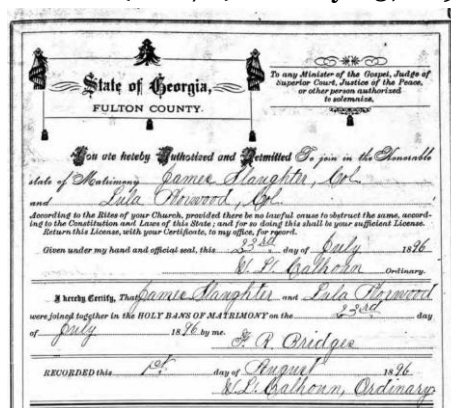 State of Georgia,
FULTON COUNTY.
To any Minister of the Gospel, Judge of
Superior Court, Justice of the Peace,
or other person authorized
to solemnize.
You are hereby Authorized and Permitted To join in the Honorable
state of Matrimony James Slaughter, Col.
and Lula Norwood, Col.
According to the Rites of your Church, provided there be no lawful cause to obstruct the same, accord-
ing to the Constitution and Laws of this State; and for so doing this shall be your sufficient License.
Return this License, with your Certificate, to my office, for record.
Given under my hand and official seal, this 23rd day of July 1896
W. L. Calhoun Ordinary.
I hereby Certify, That James Slaughter and Lula Norwood
were joined together in the HOLY BANS OF MATRIMONY on the 23rd day
of July 1896 by me.
F. R. Bridges
RECORDED this 1st. day of August 1896.
W. L. Calhoun, Ordinary